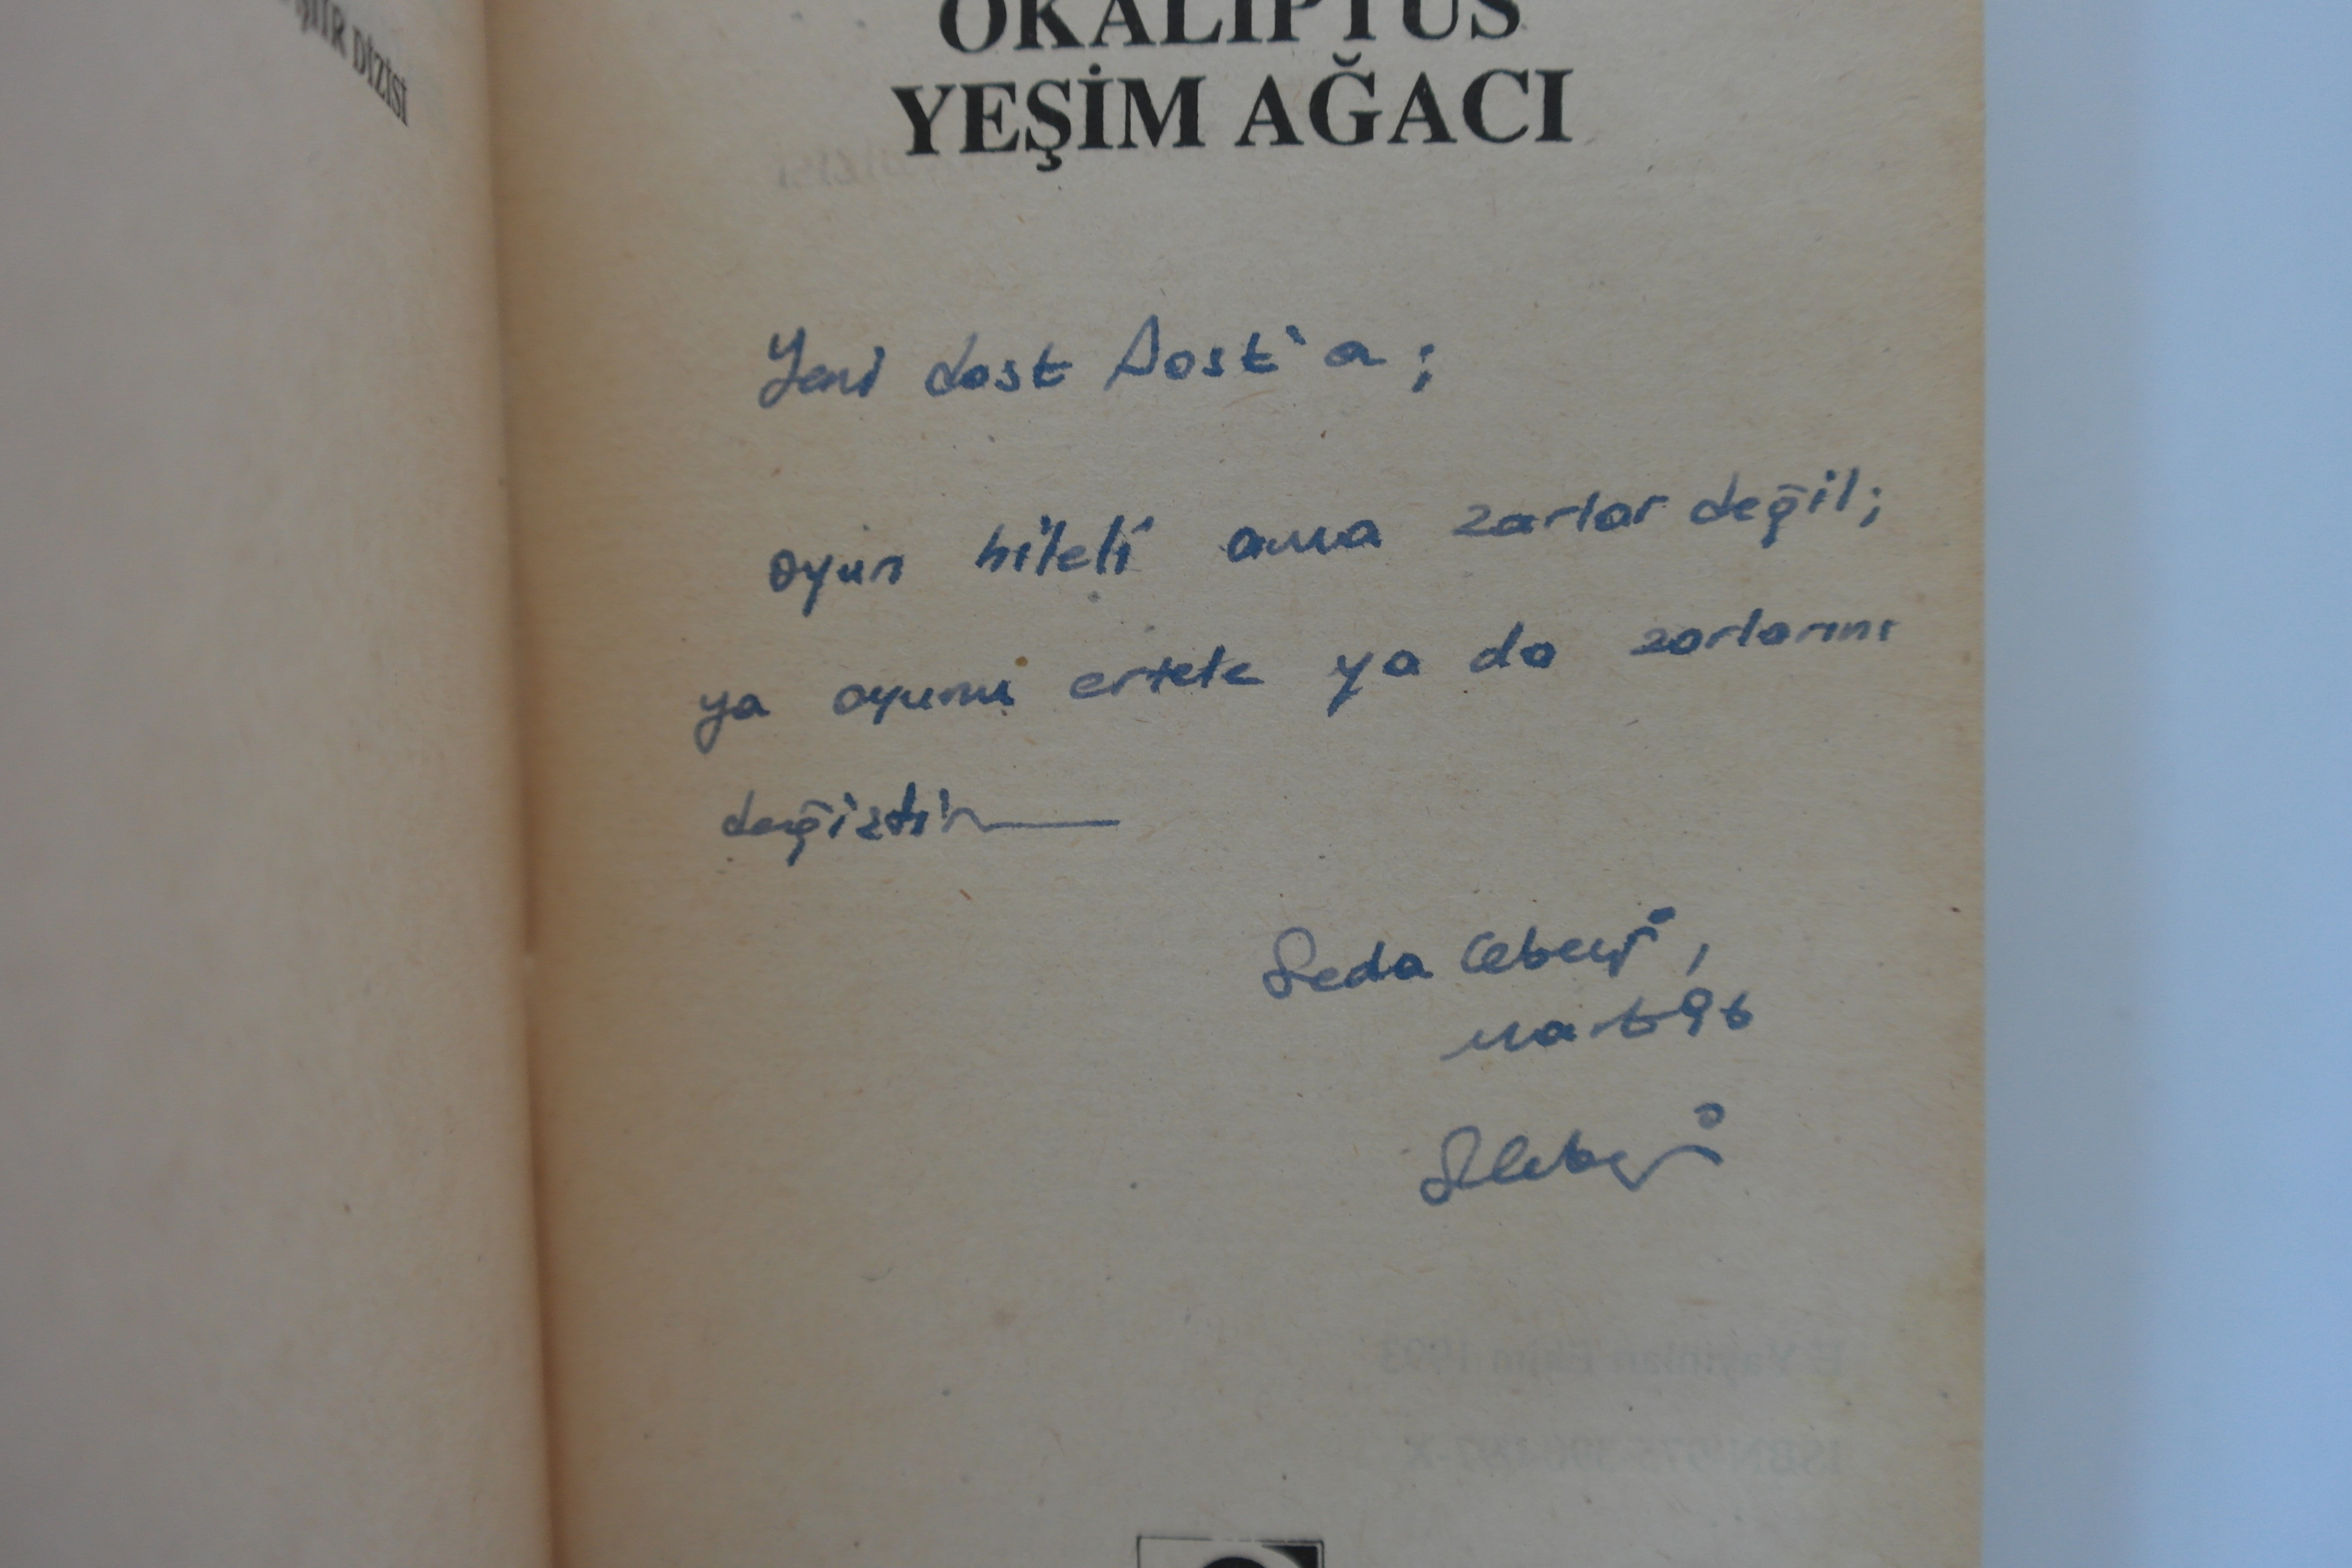 ŞİİR DİZİSİ
OKALİPTUS
YEŞİM AĞACI
Yeni dost Dost'a;
oyun hileli ama zarlar değil;
ya oyunu ertele ya da zarlarını
değiştir
Seda Cebeci,
mart 96
SCebeci
E Yayınları Ekim 1993